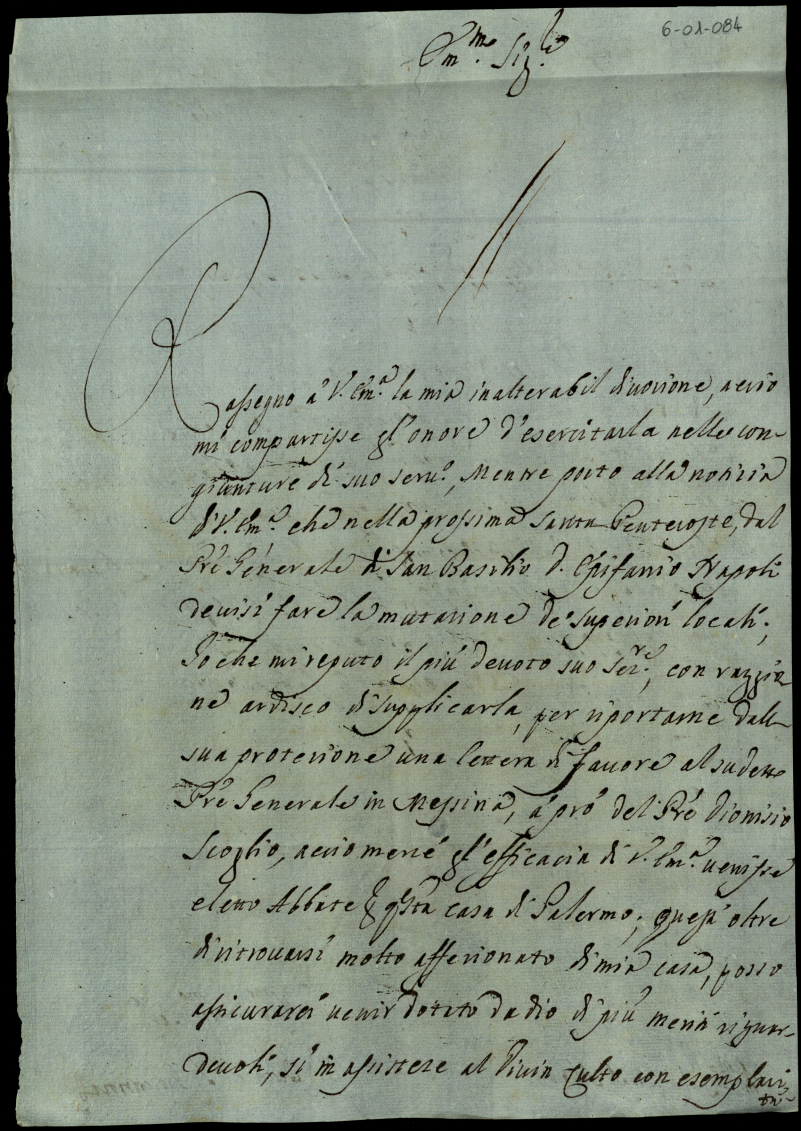 6-01-084
Em.mo Sig.re
Rassegno à V. Em.a la mia inalterabil divozione, accio
mi compartisse gl'onore d'esercitarla nelle con-
giunture di suo seru.o, Mentre porto alla notizia
di V. Em.a che nella prossima Santa Pentecoste, dal
Prè Generale di San Basilio D. Epifanio Napoli
devisi fare la mutazione de' superiori locali;
Io che mi reputo il più devoto suo Ser.e, con razzio-
ne ardisco di supplicarla, per riportarne dalla
sua protezione una lettera di favore al sudetto
Prè Generale in Messina, à prò del Prè Dionisio
Scoglio, accio mercé gl'efficacia di V. Em.a venisse
eletto Abbate di qsta casa di Palermo; questi oltre
di ritrovarsi molto affezionato di mia casa, posso
assicurarci venir dotato da dio di più meriti riguar-
devoli, sì in assistere al divin Culto con esemplari-
tà